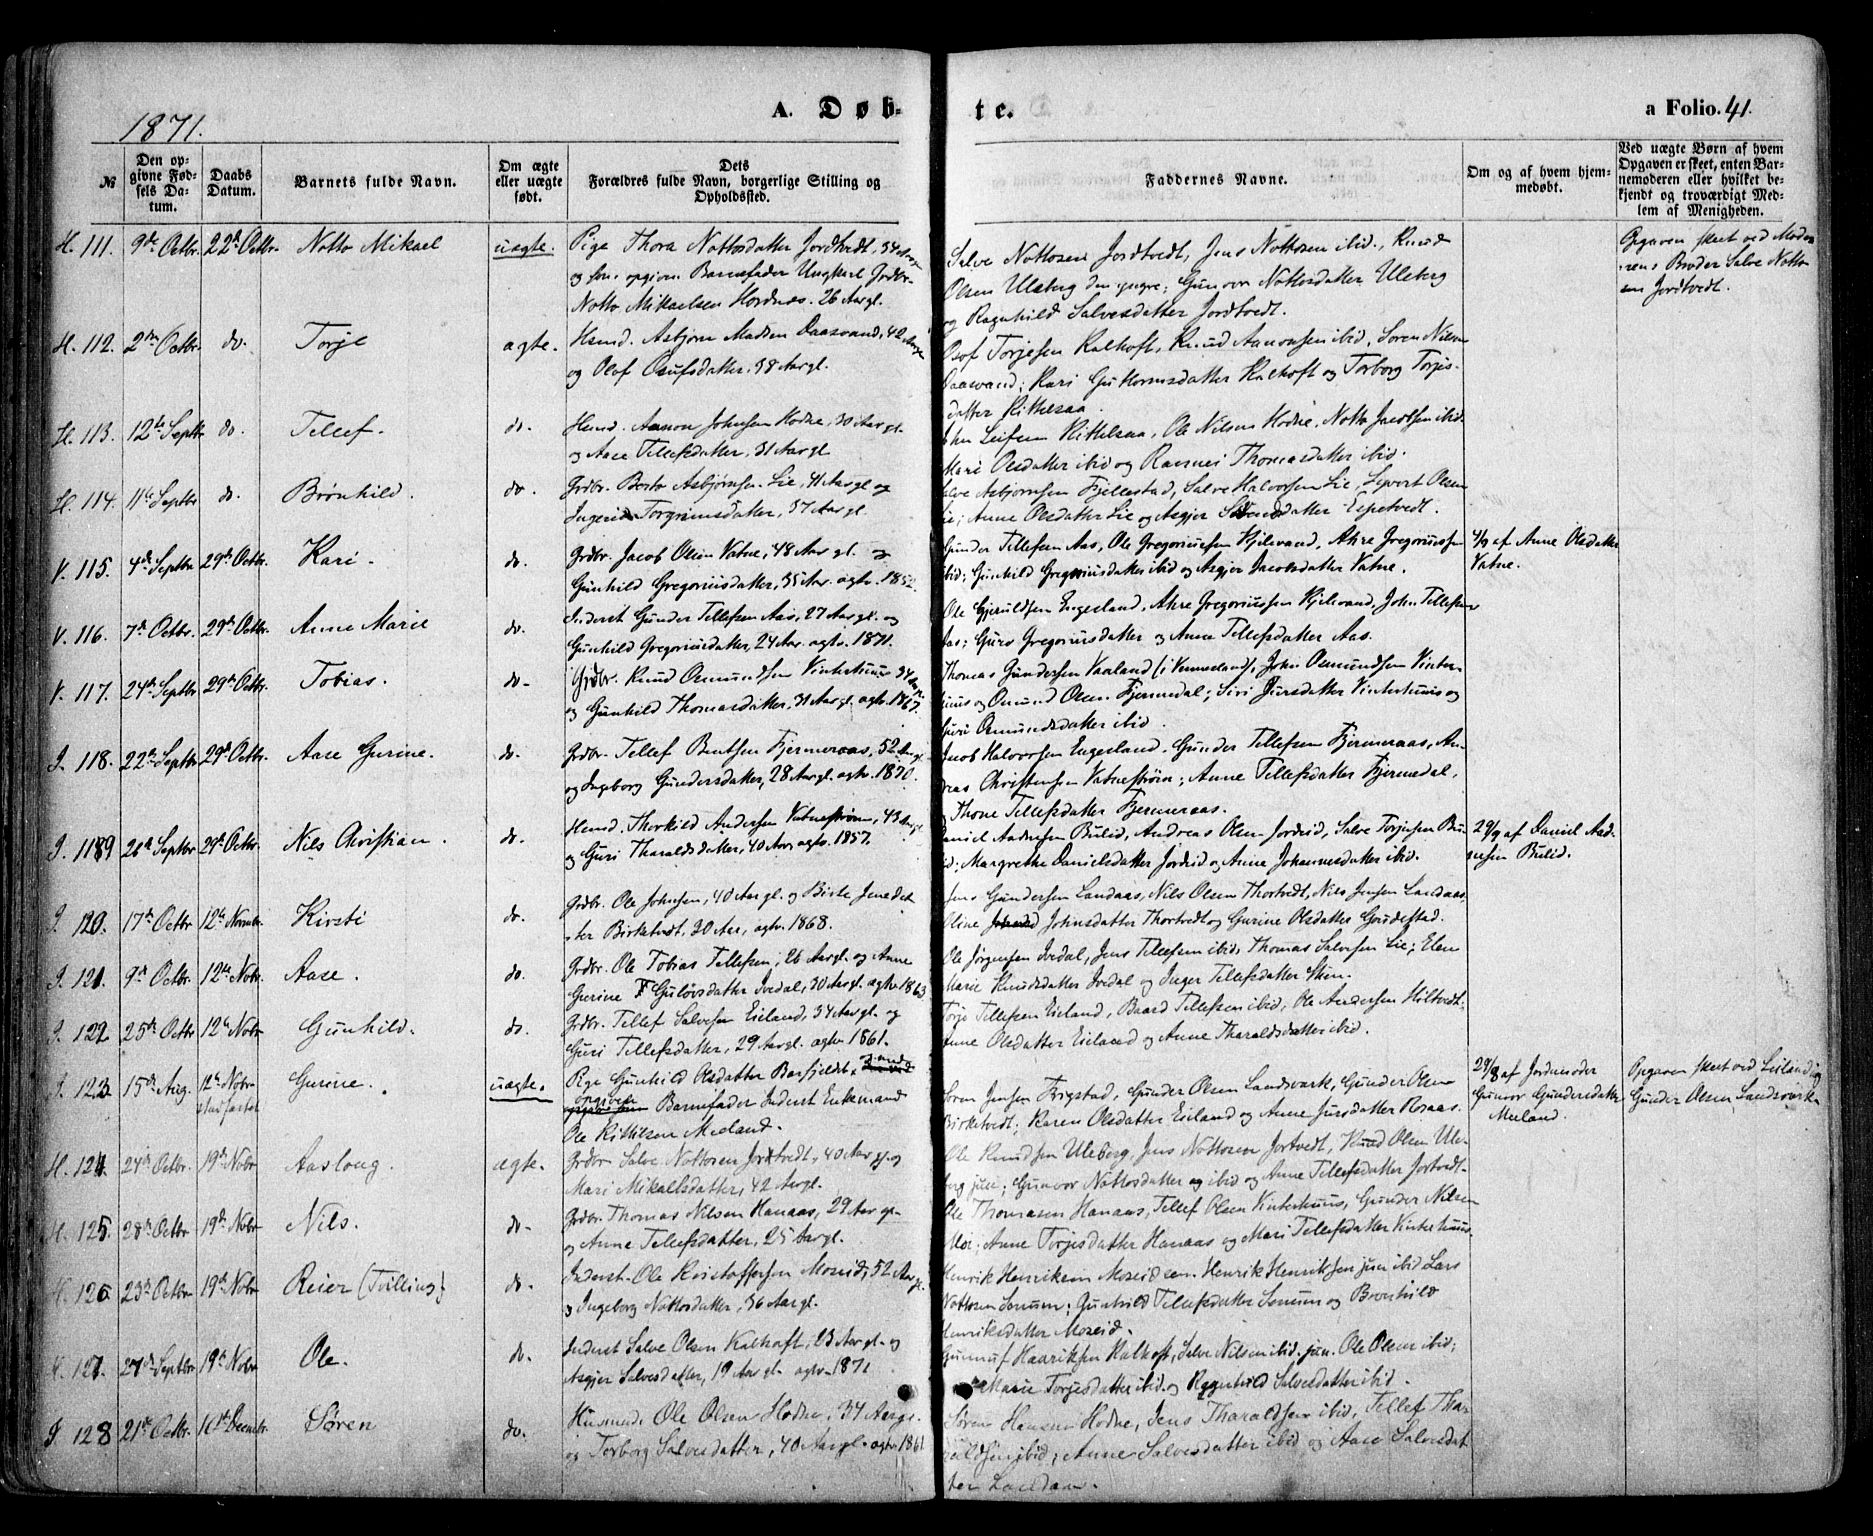 1871.
A. Døb-
te.
a Folio. 41.
№
Den op-
givne Fød-
sels Da-
tum.
Daabs
Datum.
Barnets fulde Navn.
Om ægte
eller uægte
født.
Dets
Forældres fulde Navn, borgerlige Stilling og
Opholdssted.
Faddernes Navne.
Om og af hvem hjem-
medøbt.
Ved uægte Børn af hvem
Opgaven er skeet, enten Bar-
nemoderen eller hvilket be-
kjendt og troværdigt Med-
lem af Menigheden.
H. 111. 9de Octbr. 22de Octbr. Notto Mikael uægte. Pige Thora Nottosdatter Jordtvedt, 34 Aar
og som opgiven Barnefader Ungkarl Grdbr.
Notto Mikaelsen Hordnes. 26 Aar gl.
Salve Nottosen Jordtvedt, Jens Nottosen ibid., Knud
Olsen Uleberg den yngre; Gunvor Nottosdatter Uleberg
og Ragnhild Salvesdatter Jordtvedt.
Opgaven skeet ved Mode-
rens Broder Salve Notto-
sen Jordtvedt.
H. 112. 2den Octbr. do. Torje ægte. Hsmd. Asbjørn Madsen Daasvand, 42 Aar
og Olof Osufsdatter, 38 Aar gl.
Osof Torjesen Kalhoft, Knud Aanonsen ibid, Søren Nilsen
Daasvand; Kari Guttormsdatter Kalhoft og Torborg Torjes-
datter Kittelsaa.
H. 113. 12te Septbr do. Tellef. do. Hsmd. Aanon Johnsen Hodne, 30 Aar gl.
og Aase Tellefsdatter, 31 Aar gl.
John Leifsen Kittelsaa, Ole Nilsen Hodne, Notto Jacobsen ibid.
Mari Olsdatter ibid og Rannei Thomasdatter ibid.
H. 114. 11te Septbr do. Brønhild. do. Grdbr. Berto Asbjørnsen Lie, 41 Aar gl og
Ingerid Torgrimsdatter, 37 Aar gl.
Salve Asbjørnsen Fjellestad, Salve Halvorsen Lie, Sigvort Olsen
Lie; Anne Olsdatter Lie og Asgjer datter Espetvedt.
V. 115. 4de Septbr 29de Octbr. Kari. do. Grdbr. Jacob Olsen Vatne, 48 Aar gl. og
Gunhild Gregoriusdatter, 35 Aar. agtv. 1852.
Gunder Tellefsen Aas, Ole Gregoriussen Kjilevand, Akre Gregoriussen
ibid; Gunhild Gregoriusdatter ibid og Asgjer Jacobsdatter Vatne.
4/9 af Anne Olsdatter
Vatne.
V. 116. 7de Octbr. 29de Octbr. Anne Marie do. Inderst Gunder Tellefsen Aas, 27 Aar gl. og
Gunhild Gregoriusdatter, 24 Aar agtv. 1871.
Ole Gjeruldsen Engesland, Akre Gregoriussen Kjilevand, John Tellefsen
Aas; Guro Gregoriusdatter og Anne Tellefsdatter Aas.
V. 117. 24de Septbr 29de Octbr. Tobias. do. Grdbr. Knud Osmundsen Vinterhuus 34 Aar
og Gunhild Thomasdatter, 31 Aar gl. agtv. 1867.
Thomas Gundersen Vaaland (i Vennesland), John Osmundsen Vinter-
huus og Omund Olsen Fjermedal; Siri Jursdatter Vinterhuus og
Guri Osmundsdatter ibid.
I. 118. 22de Septbr 29de Octbr. Aase Gurine. do. Grdbr. Tellef Bentsen Fjermeraas, 52 Aar gl.
og Ingeborg Gundersdatter, 28 Aar gl. agtv. 1870.
Jacob Halvorsen Engesland, Gunder Tellefsen Fjermeraas, An-
dreas Christensen Vatnestrøm; Anne Tellefsdatter Fjermedal,
og Thone Tellefsdatter Fjermeraas.
I. 119 26de Septbr 29de Octbr. Nils Christian. do. Hsmd. Thorkild Andersen Vatnestrøm, 43 Aar gl
og Guri Tharaldsdatter, 40 Aar agtv. 1857.
Daniel Aadnesen Bulid, Andreas Olsen Jordrid, Salve Torjesen Bu-
lid; Margrethe Danielsdatter Jordrid og Anne Johannesdatter ibid.
29/9 af Daniel Aad-
nesen Bulid.
I. 120. 17de Octbr 12te Novbr. Kirsti do. Grdbr. Ole Johnsen, 40 Aar gl. og Birte Jensdat-
ter Birketvedt, 30 Aar, agtv. 1868.
Jens Gundersen Landaas, Nils Olsen Thortvedt, Nils Jensen Landaas,
Oline Johnsdatter Thortvedt og Gurine Olsdatter Grudestad.
I. 121. 9de Octbr 12te Novbr. Aase. do. Grdbr. Ole Tobias Tellefsen, 26 Aar gl. og Anne
Gurine Guløvsdatter Ivedal, 30 Aar gl. agtv. 1863
Ole Jørgensen Ivedal, Jens Tellefsen ibid, Thomas Salvesen Lie; Elen
Marie Knudsdatter Ivedal og Inger Tellefsdatter Skin.
I. 122. 25de Octbr 12te Novbr Gunhild. do. Grdbr. Tellef Salvesen Eieland, 34 Aar gl. og
Guri Tellefsdatter, 29 Aar gl. agtv. 1861.
Torjo Tellefsen Eieland, Baard Tellefsen ibid, Ole Andersen Hiltvedt,
Anne Olsdatter Eieland og Anne Tharaldsdatter ibid.
I. 123. 15de Aug. 12te Novbr
stadfæstet Gurine. uægte. Pige Gunhild Olsdatter Barfjeldet,
opgiven Barnefader Inderst Enkemand
Ole Kittilsen Meeland.
Søren Jensen Frigstad, Gunder Olsen Landsværk, Gunder Olsen
Birketvedt; Karen Olsdatter Eieland og Anne Jursdatter Rosaas.
29/8 af Jordemoder
Gunvor Gundersdatter
Meeland.
Opgaven skeet ved Leilænding
Gunder Olsen Landsværk.
H. 124. 24de Octbr. 19de Novbr Aaslaug. ægte. Grdbr Salve Nottosen Jortvedt, 40 Aar gl og
Mari Mikaelsdatter, 42 Aar gl.
Ole Knudsen Uleberg, Jens Nottosen Jortvedt, Knud Olsen Ule-
berg jun; Gunvor Nottosdatter ibid og Anne Tellefsdatter Jortvedt.
H. 125. 28de Octbr 19de Novbr Nils. do. Grdbr. Thomas Nilsen Hanaas, 29 Aar gl.
og Anne Tellefsdatter, 25 Aar gl.
Ole Thomasen Hanaas, Tellef Olsen Vinterhuus, Gunder Nilsen
Moi; Anne Torjesdatter Hanaas og Mari Tellefsdatter Vinterhuus.
H. 126 23de Octbr 19de Novbr Reier (Tvilling) do. Inderst Ole Kristoffersen Moseid, 52 Aar gl.
og Ingeborg Nottosdatter, 36 Aar gl.
Henrik Henriksen Moseid sen. Henrik Henriksen jun ibid Lars
Nottosen Senum; Gunhild Tellefsdatter Senum og Brønhild
Henriksdatter Moseid.
H. 127. 27de Septbr 19de Novbr Ole. do. Inderst Salve Olsen Kalhoft, 23 Aar gl. og
Asgjer Salvesdatter, 19 Aar gl. agtv. 1871
Gunnuf Haariksen Kalhoft, Salve Nilsen ibid. jun. Ole Olsen ibid;
Marie Torjesdatter ibid. og Ragnhild Salvesdatter ibid.
I 128 21de Octbr. 10de Decembr. Søren do. Husmd. Ole Olsen Hodne, 34 Aar gl.
og Torborg Salvesdatter, 40 Aar gl. agtv. 1861
Søren Hansen Hodne, Jens Tharaldsen ibid, Tellef Tha-
raldsen ibid; Anne Salvesdatter ibid og Aase Salvesdat-
ter